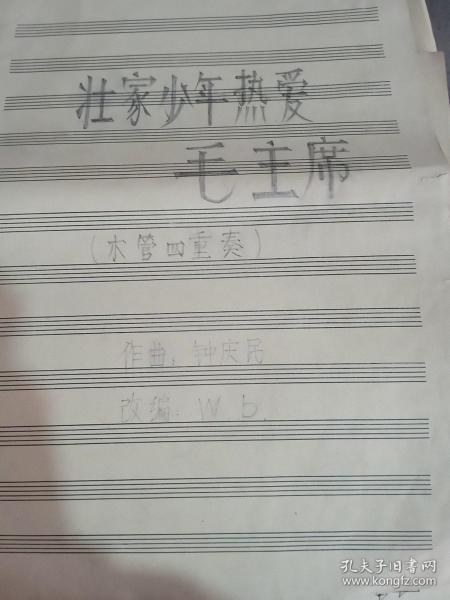 壮家少年热爱
毛主席
(木管四重奏)
作曲：钟庆民
改编：W b.
孔夫子旧书网
www.kongfz.com